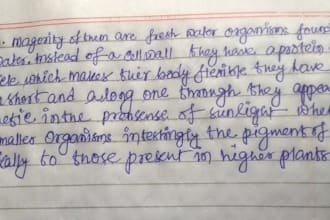 . magerity of them are fresh water organisms found
ater. Instead of a cell wall they have a protein
cle which makes their body flexible they have
a short and a long one through they appea
hetic in the pransense of sunlight whe
maller organisms intestingly the pigment of
ically to those present in higher plants